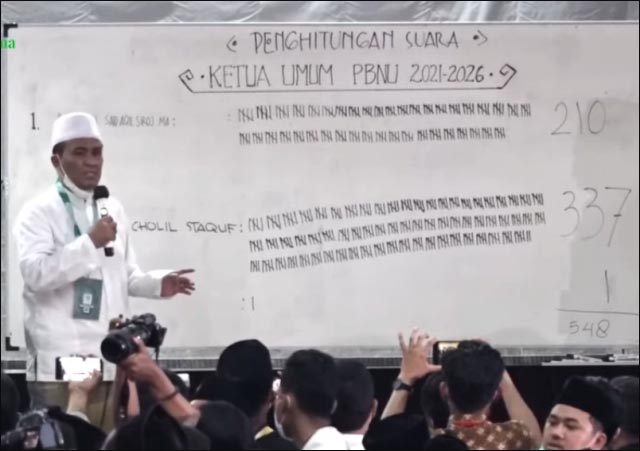 PENGHITUNGAN SUARA
KETUA UMUM PBNU 2021-2026
1. SAID AQIL SIROJ MA : 210
CHOLIL STAQUF : 337
: 1 1
548